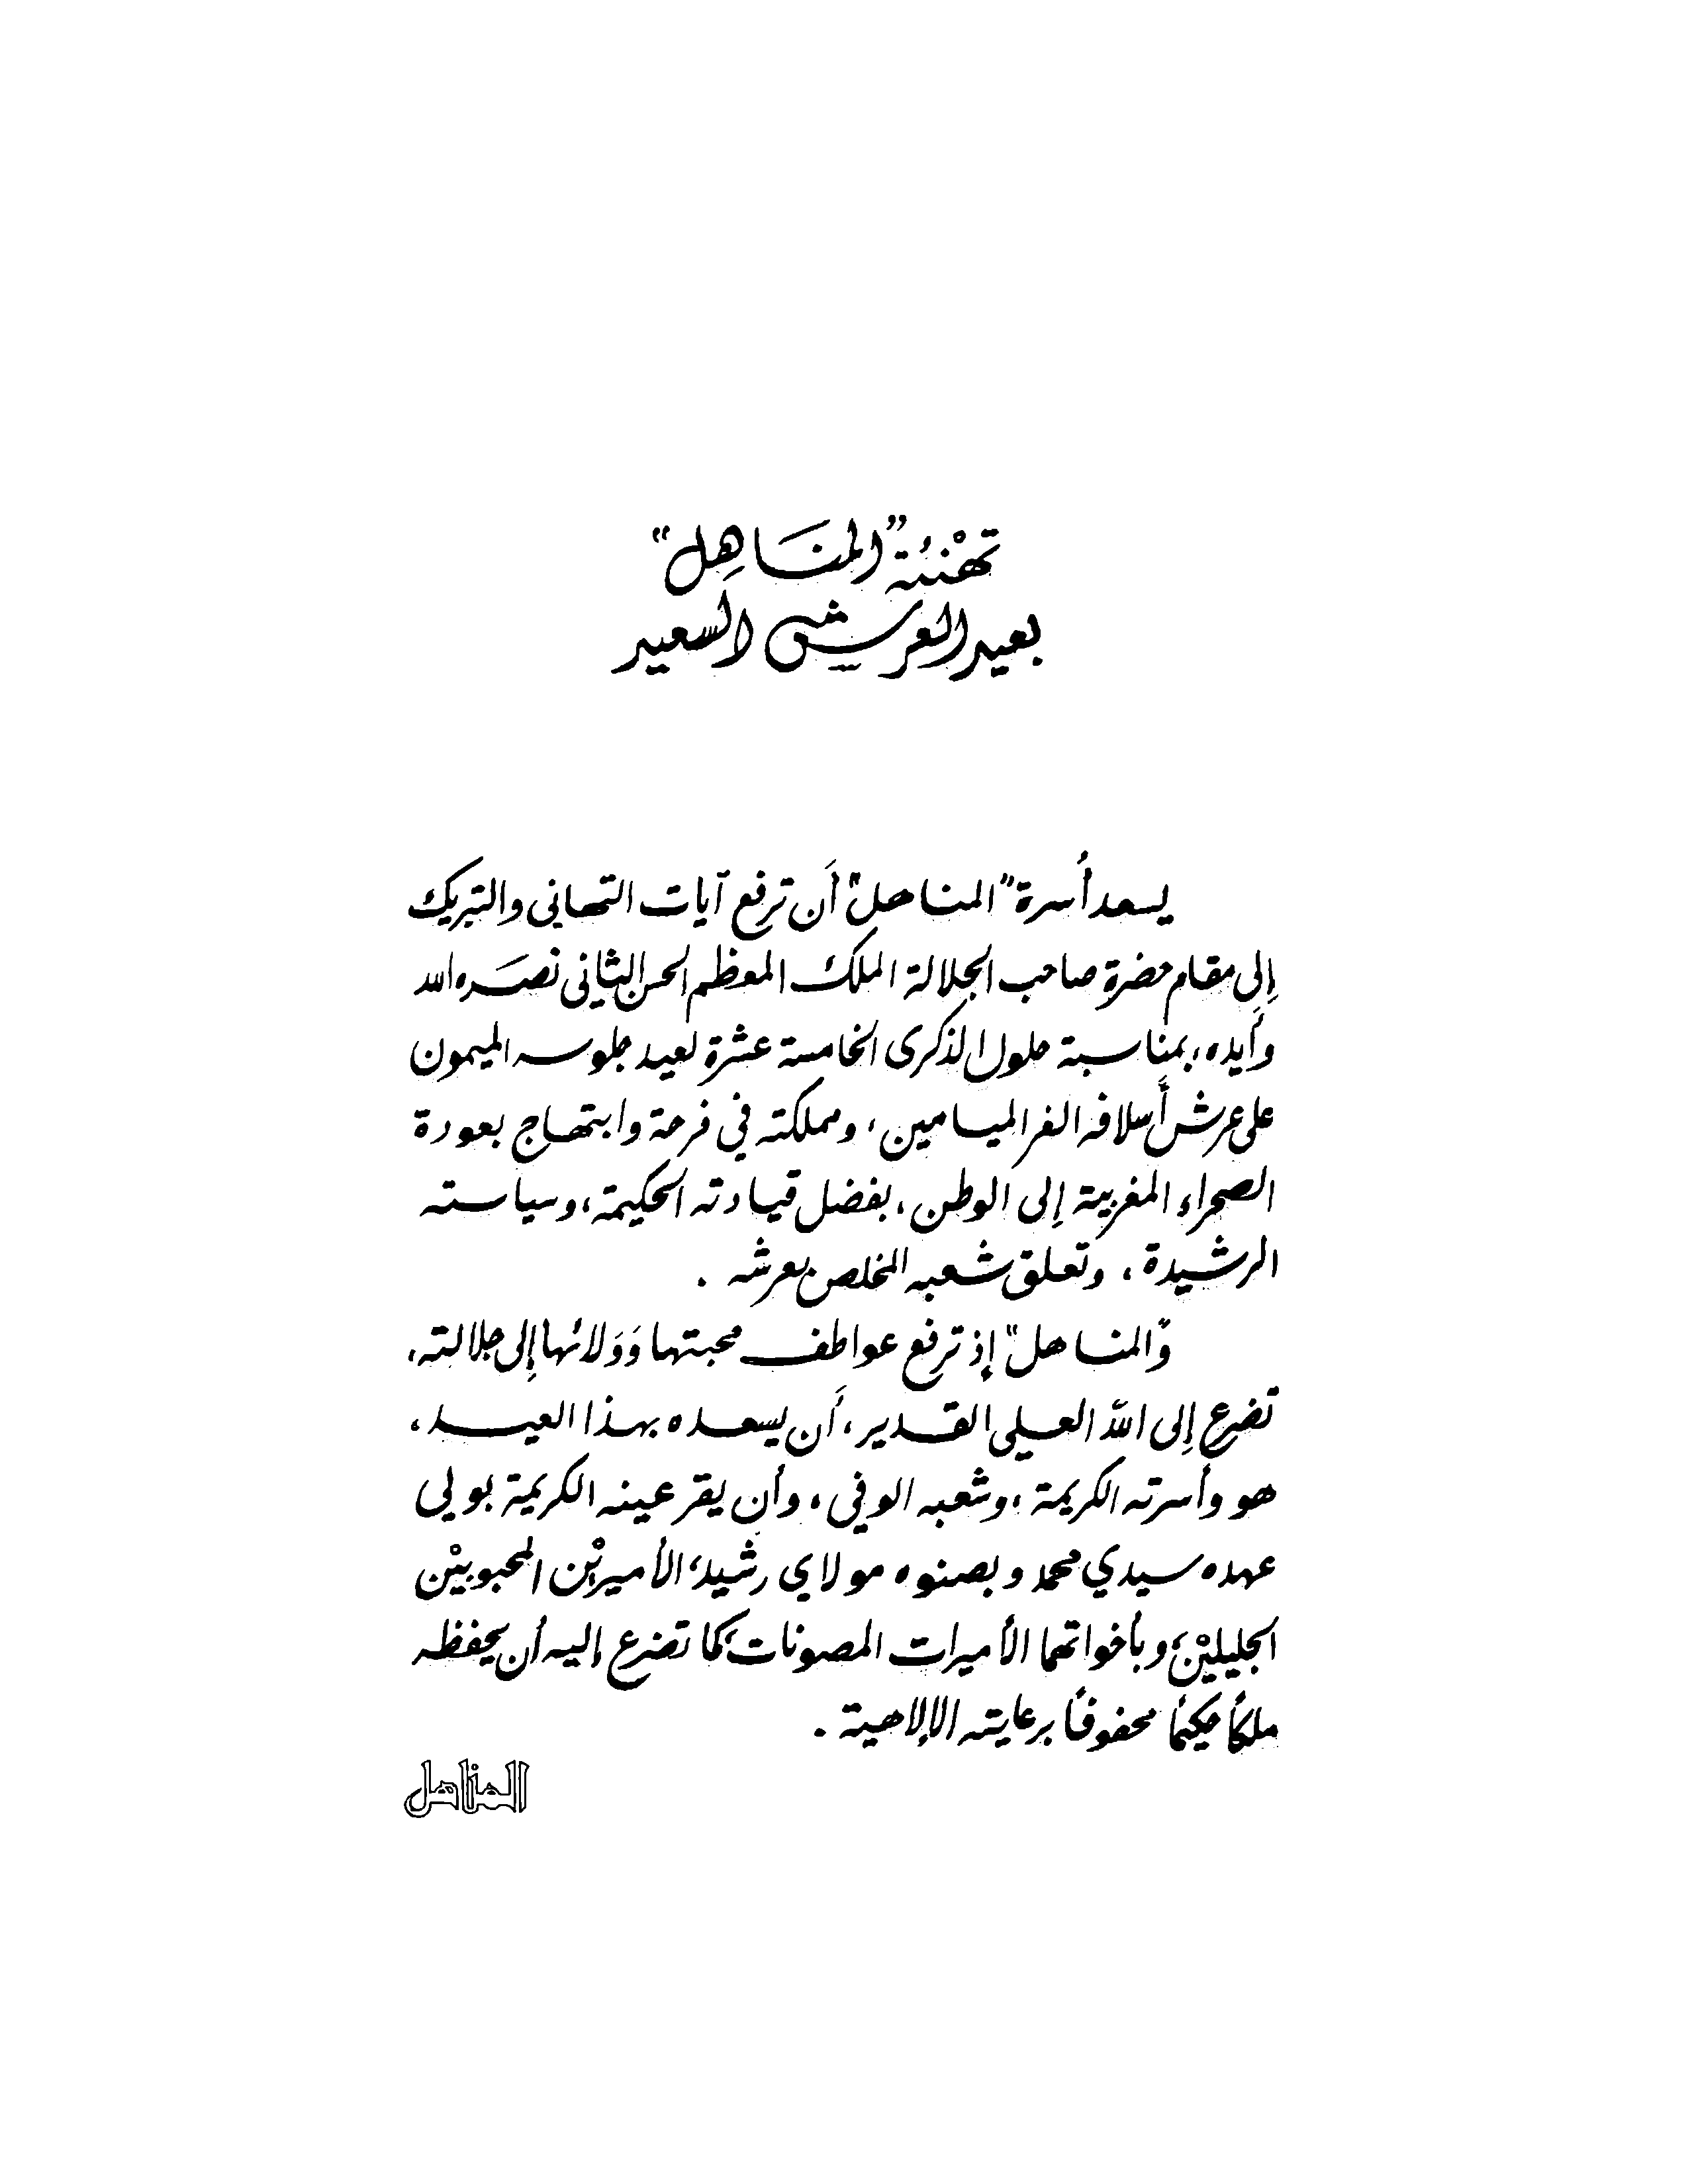 تهْنئة "المنَاهِل"
بعيد العرش السعيد
يسعد أُسرة "المناهل" أَن ترفع آيات التهاني والتبريك
إِلى مقام حضرة صاحب الجلالة الملك المعظم الحسن الثاني نصَره الله
وأَيده، بمناسبة حلول الذكرى الخامسة عشرة لعيد جلوسه الميمون
على عرش أَسلافه الغر الميامين، ومملكته في فرحة وابتهاج بعودة
الصحراء المغربية إِلى الوطن، بفضل قيادته الحكيمة، وسياسته
الرشيدة، وتعلق شعبه المخلص بعرشه .
و"المناهل" إذ ترفع عواطف محبتها وَوَلائها إِلى جلالته،
تضرع إِلى اللّه العلي القدير، أَن يسعده بهذا العيد،
هو وأسرته الكريمة، وشعبه الوفي، وأن يقر عينه الكريمة بولي
عهده سيدي محمد وبصنوه مولاي رشيد، الأميريْن المحبوبيْن
الجليليْن، وبأخواتهما الأميرات المصونات، كما تضرع إليه أن يحفظه
ملكاً حكيماً محفوفاً برعايته الإلاهية .
المناهل